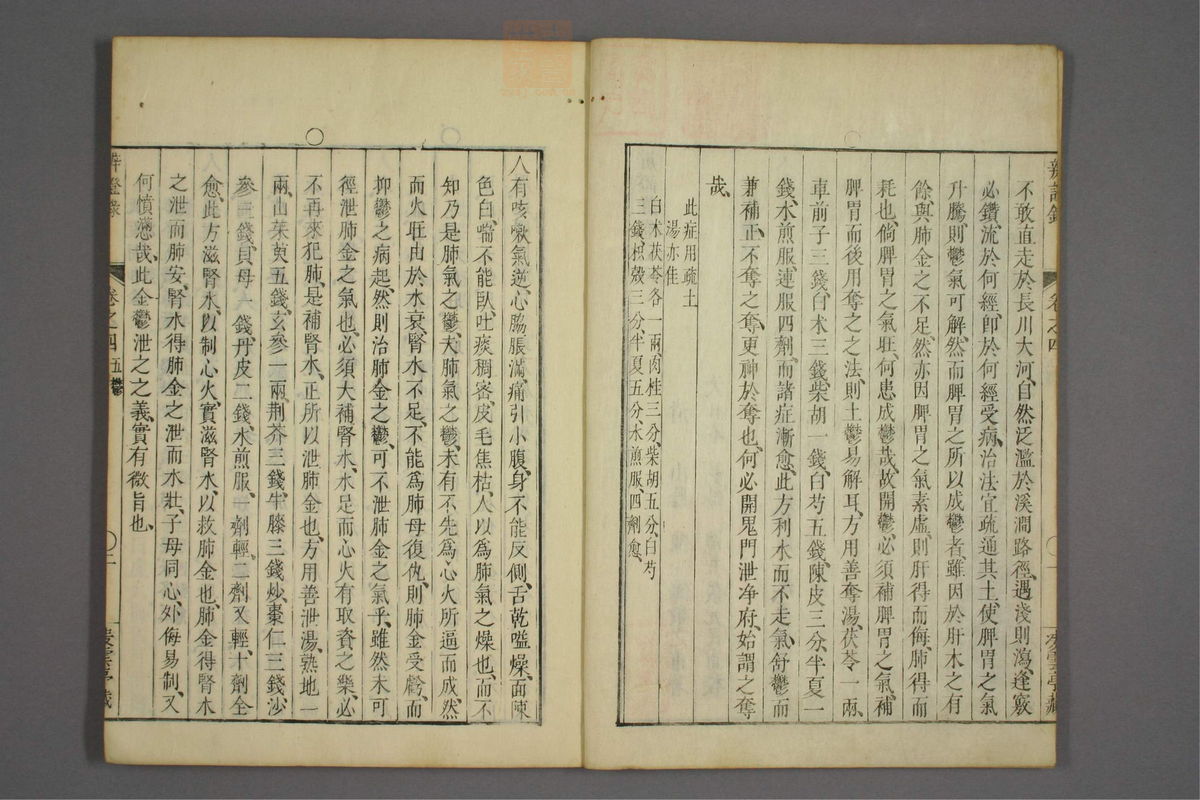 辨證錄 卷之四
不敢直走於長川大河、自然泛濫於溪澗路徑、遇淺則瀉、逢竅
必鑽、流於何經、卽於何經受病、治法宜疏通其土、使脾胃之氣
升騰、則鬱氣可解、然而脾胃之所以成鬱者、雖因於肝木之有
餘、與肺金之不足、然亦因脾胃之氣素虛、則肝得而侮、肺得而
耗也、倘脾胃之氣旺、何患成鬱哉、故開鬱必須補脾胃之氣、補
脾胃而後用奪之之法、則土鬱易解耳、方用善奪湯、茯苓一兩、
車前子三錢、白术三錢、柴胡一錢、白芍五錢、陳皮三分、半夏一
錢、水煎服、連服四劑、而諸症漸愈、此方利水而不走氣、舒鬱而
兼補正、不奪之奪、更神於奪也、何必開鬼門、泄净府、始謂之奪
哉、
此症用疏土
湯亦佳
白术茯苓各一兩、肉桂三分、柴胡五分、白芍
三錢、枳殼三分、半夏五分、水煎服四劑愈、
人有咳嗽氣逆、心脇脹滿、痛引小腹、身不能反側、舌乾嗌燥、面陳
色白、喘不能臥、吐痰稠密、皮毛焦枯、人以爲肺氣之燥也、而不
知乃是肺氣之鬱、夫肺氣之鬱、未有不先爲心火所逼而成、然
而火旺由於水衰、腎水不足、不能爲肺母復仇、則肺金受虧、而
抑鬱之病起、然則治肺金之鬱、可不泄肺金之氣乎、雖然未可
徑泄肺金之氣也、必須大補腎水、水足而心火有取資之樂、必
不再來犯肺、是補腎水、正所以泄肺金也、方用善泄湯、熟地一
兩、山茱萸五錢、玄參一兩、荆芥三錢、牛膝三錢、炒棗仁三錢、沙
參三錢、貝母一錢、丹皮二錢、水煎服、一劑輕、二劑又輕、十劑全
愈、此方滋腎水、以制心火、實滋腎水、以救肺金也、肺金得腎水
之泄而肺安、腎水得肺金之泄而水壯、子母同心、外侮易制、又
何憤懣哉、此金鬱泄之之義、實有微旨也、
卷之四 五鬱 二